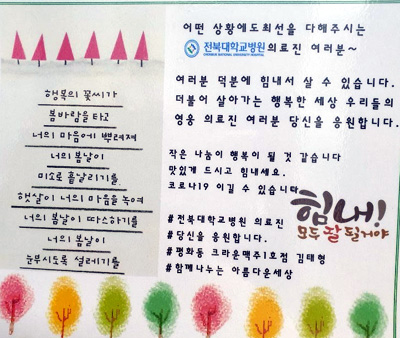 어떤 상황에도최선을 다해주시는
전북대학교병원 의료진 여러분~
여러분 덕분에 힘내서 살 수 있습니다.
더불어 살아가는 행복한 세상 우리들의
영웅 의료진 여러분 당신을 응원합니다.
작은 나눔이 행복이 될 것 같습니다
맛있게 드시고 힘내세요.
코로나19 이길 수 있습니다
힘내!
모두 잘 될거야
#전북대학교병원 의료진
#당신을 응원합니다.
#평화동 크라운맥주1호점 김태형
#함께나누는 아름다운세상
행복의 꽃씨가
봄바람을 타고
너의 마음에 뿌려져
너의 봄날이
미소로 흩날리기를
햇살이 너의 마음을 녹여
너의 봄날이 따스하기를
너의 봄날이
눈부시도록 설레기를